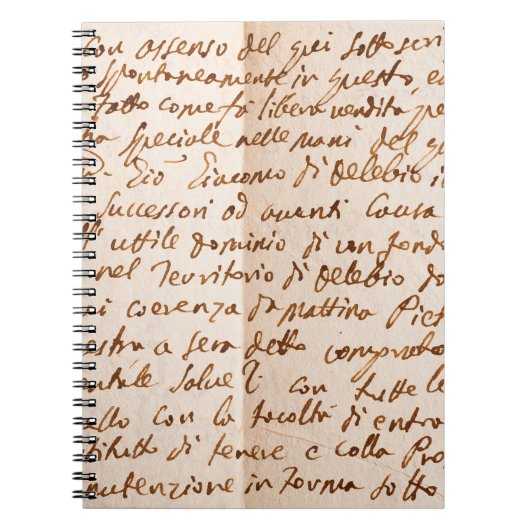 Con assenso del qui sottoscri
spontaneamente in questo, ed
fatto come fà libera vendita, pe
speciale nelle mani del q
Gio Giacomo di Delebio i
Successori od aventi Causa
utile dominio di un fondo
nel Territorio di Delebio do
coerenza da mattina Piet
a sera detto comprato
salve con tutte le
con la facoltà di entra
di tenere e colla Pro
in forma sotto